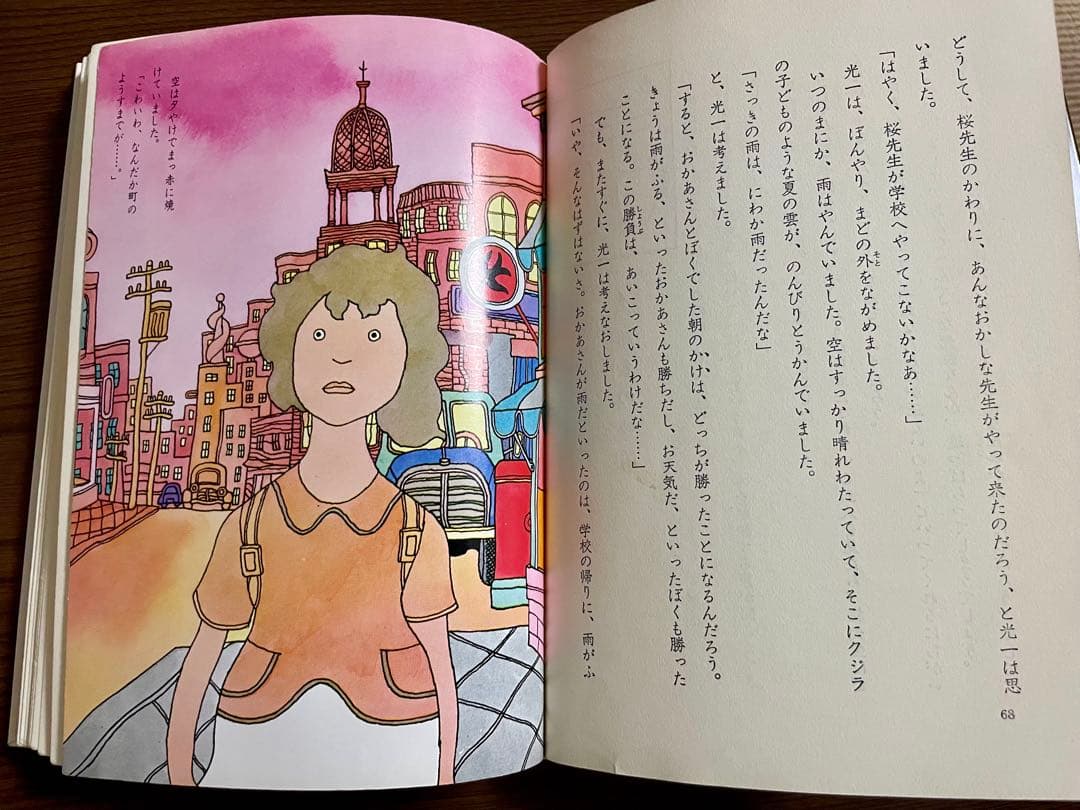 どうして、桜先生のかわりに、あんなおかしな先生がやって来たのだろう、と光一は思
いました。
「はやく、桜先生が学校へやってこないかなあ……」
光一は、ぼんやり、まどの外をながめました。
いつのまにか、雨はやんでいました。空はすっかり晴れわたっていて、そこにクジラ
の子どものような夏の雲が、のんびりとうかんでいました。
「さっきの雨は、にわか雨だったんだな」
と、光一は考えました。
「すると、おかあさんとぼくでした朝のかけは、どっちが勝ったことになるんだろう。
きょうは雨がふる、といったおかあさんも勝ちだし、お天気だ、といったぼくも勝った
ことになる。この勝負は、あいこっていうわけだな……」
でも、またすぐに、光一は考えなおしました。
「いや、そんなはずはないさ。おかあさんが雨だといったのは、学校の帰りに、雨がふ
68
空は夕やけでまっ赤に焼
けていました。
「こわいわ、なんだか町の
ようすまでが……。」